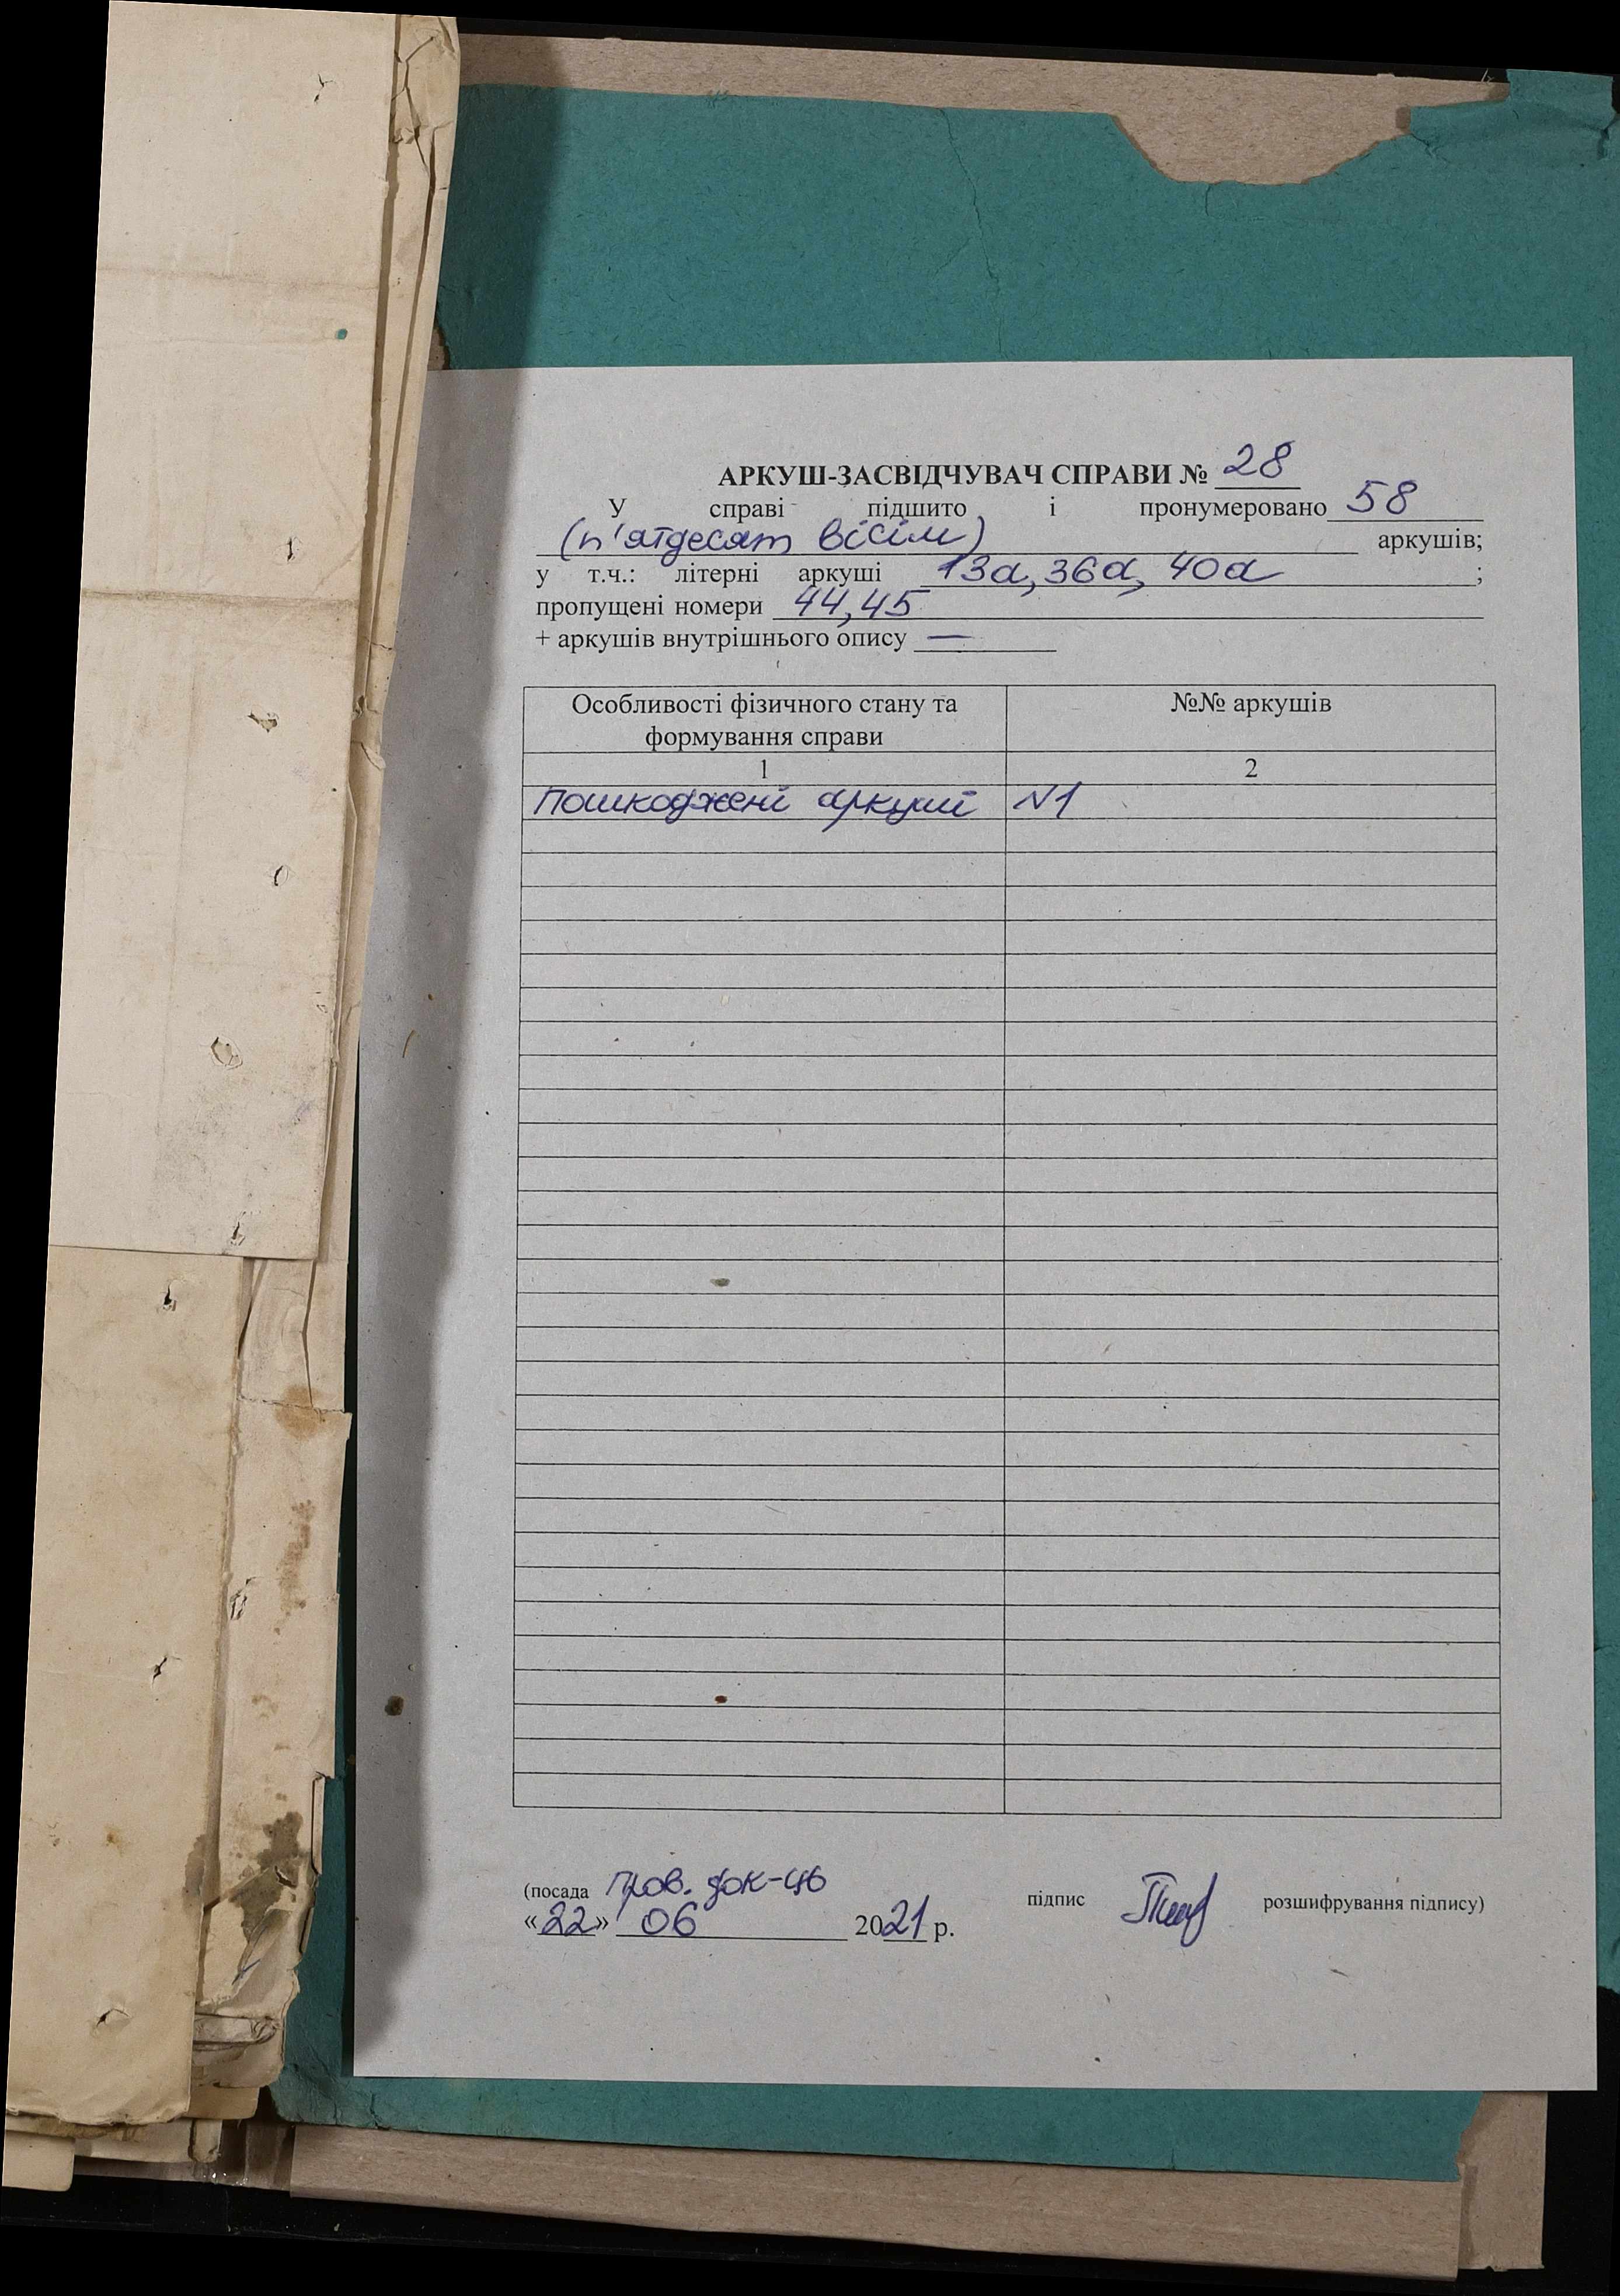 АРКУШ-ЗАСВІДЧУВАЧ СПРАВИ № 28
У справі підшито і пронумеровано 58
(п'ятдесят вісім) аркушів;
у т.ч.: літерні аркуші 13а, 36а, 40а ;
пропущені номери 44, 45
+ аркушів внутрішнього опису —
Особливості фізичного стану та формування справи | №№ аркушів
1 | 2
Пошкоджені аркуші | N1
(посада пров. док-ць підпис розшифрування підпису)
«22» 06 2021 р.